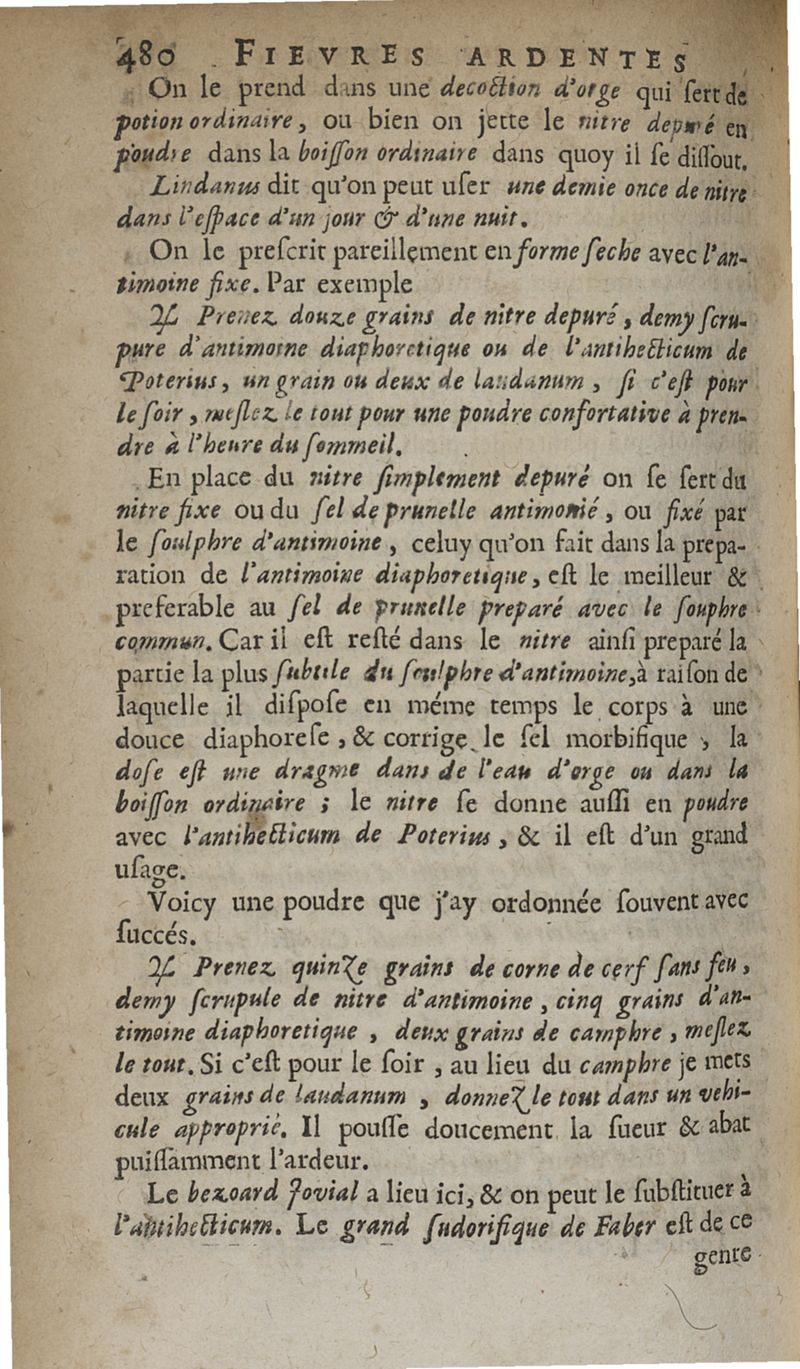 480 FIEVRES ARDENTES
On le prend dans une decoction d'orge qui ſert de
potion ordinaire, ou bien on jette le nitre depuré en
poudre dans la boiſſon ordinaire dans quoy il ſe diſſout.
Lindanus dit qu'on peut uſer une demie once de nitre
dans l'eſpace d'un jour & d'une nuit.
On le preſcrit pareillement en forme ſeche avec l'an-
timoine fixe. Par exemple
♃ Prenez douze grains de nitre depuré, demy ſcru-
pure d'antimoine diaphoretique ou de l'antihecticum de
Poterius, un grain ou deux de laudanum, ſi c'eſt pour
le ſoir, meſlez le tout pour une poudre confortative à pren-
dre à l'heure du ſommeil.
En place du nitre ſimplement depuré on ſe ſert du
nitre fixe ou du ſel de prunelle antimonié, ou fixé par
le ſoulphre d'antimoine, celuy qu'on fait dans la prepa-
ration de l'antimoine diaphoretique, eſt le meilleur &
preferable au ſel de prunelle preparé avec le ſouphre
commun. Car il eſt reſté dans le nitre ainſi preparé la
partie la plus ſubtile du ſoulphre d'antimoine, à raiſon de
laquelle il diſpoſe en méme temps le corps à une
douce diaphoreſe, & corrige le ſel morbifique, la
doſe eſt une dragme dans de l'eau d'orge ou dans la
boiſſon ordinaire; le nitre ſe donne auſſi en poudre
avec l'antihecticum de Poterius, & il eſt d'un grand
uſage.
Voicy une poudre que j'ay ordonnée ſouvent avec
ſuccés.
♃ Prenez quinze grains de corne de cerf ſans feu,
demy ſcrupule de nitre d'antimoine, cinq grains d'an-
timoine diaphoretique, deux grains de camphre, meſlez
le tout. Si c'eſt pour le ſoir, au lieu du camphre je mets
deux grains de laudanum, donnez le tout dans un vehi-
cule approprié. Il pouſſe doucement la ſueur & abat
puiſſamment l'ardeur.
Le bezoard Jovial a lieu ici, & on peut le ſubſtituer à
l'antihecticum. Le grand ſudorifique de Faber eſt de ce
genre